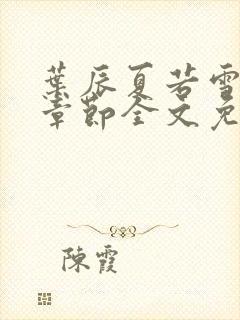 葉辰夏若雪
章節全文免
陳霞